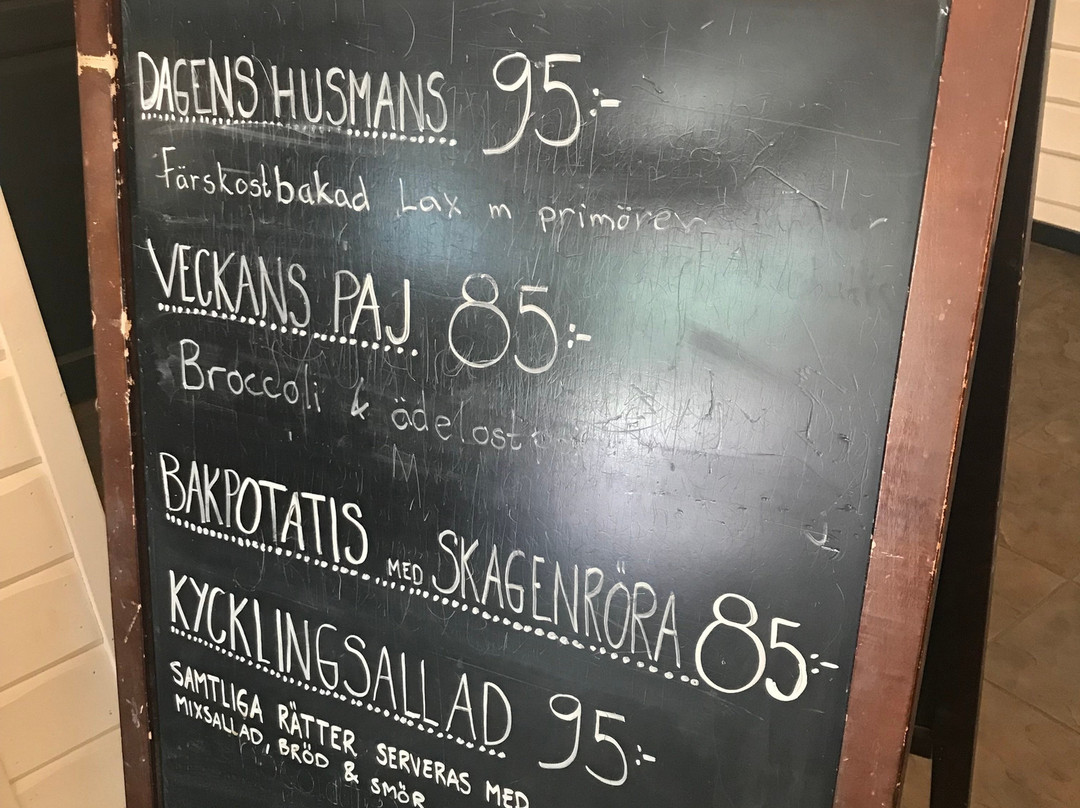 DAGENS HUSMANS 95:-
Färskostbakad Lax m primörer
VECKANS PAJ 85:-
Broccoli & ädelost
BAKPOTATIS MED SKAGENRÖRA 85:-
KYCKLINGSALLAD 95:-
SAMTLIGA RÄTTER SERVERAS MED
MIXSALLAD, BRÖD & SMÖR